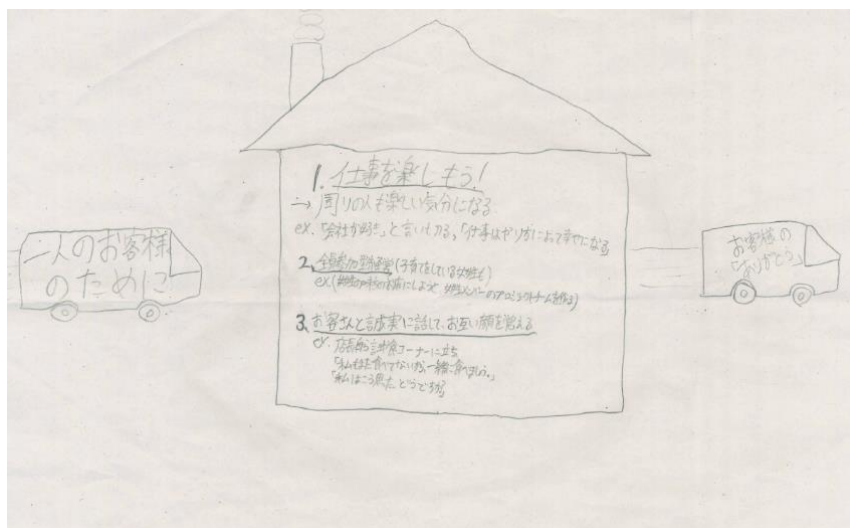 一人のお客様
のために
1. 仕事を楽しもう!
→ 周りの人も楽しい気分になる
ex.「会社が好き」と言いきる、「仕事はやり方によって幸せになる
2、全員参加型経営(子育てをしている女性も)
ex.(
3、お客さんと誠実に話して、お互い顔を覚える
ex. 店長自ら試食コーナーに立ち
「私もまだ食べてないから、一緒に食べましょう。」
「私はこう思った、どうですか?」
お客様の
「ありがとう」